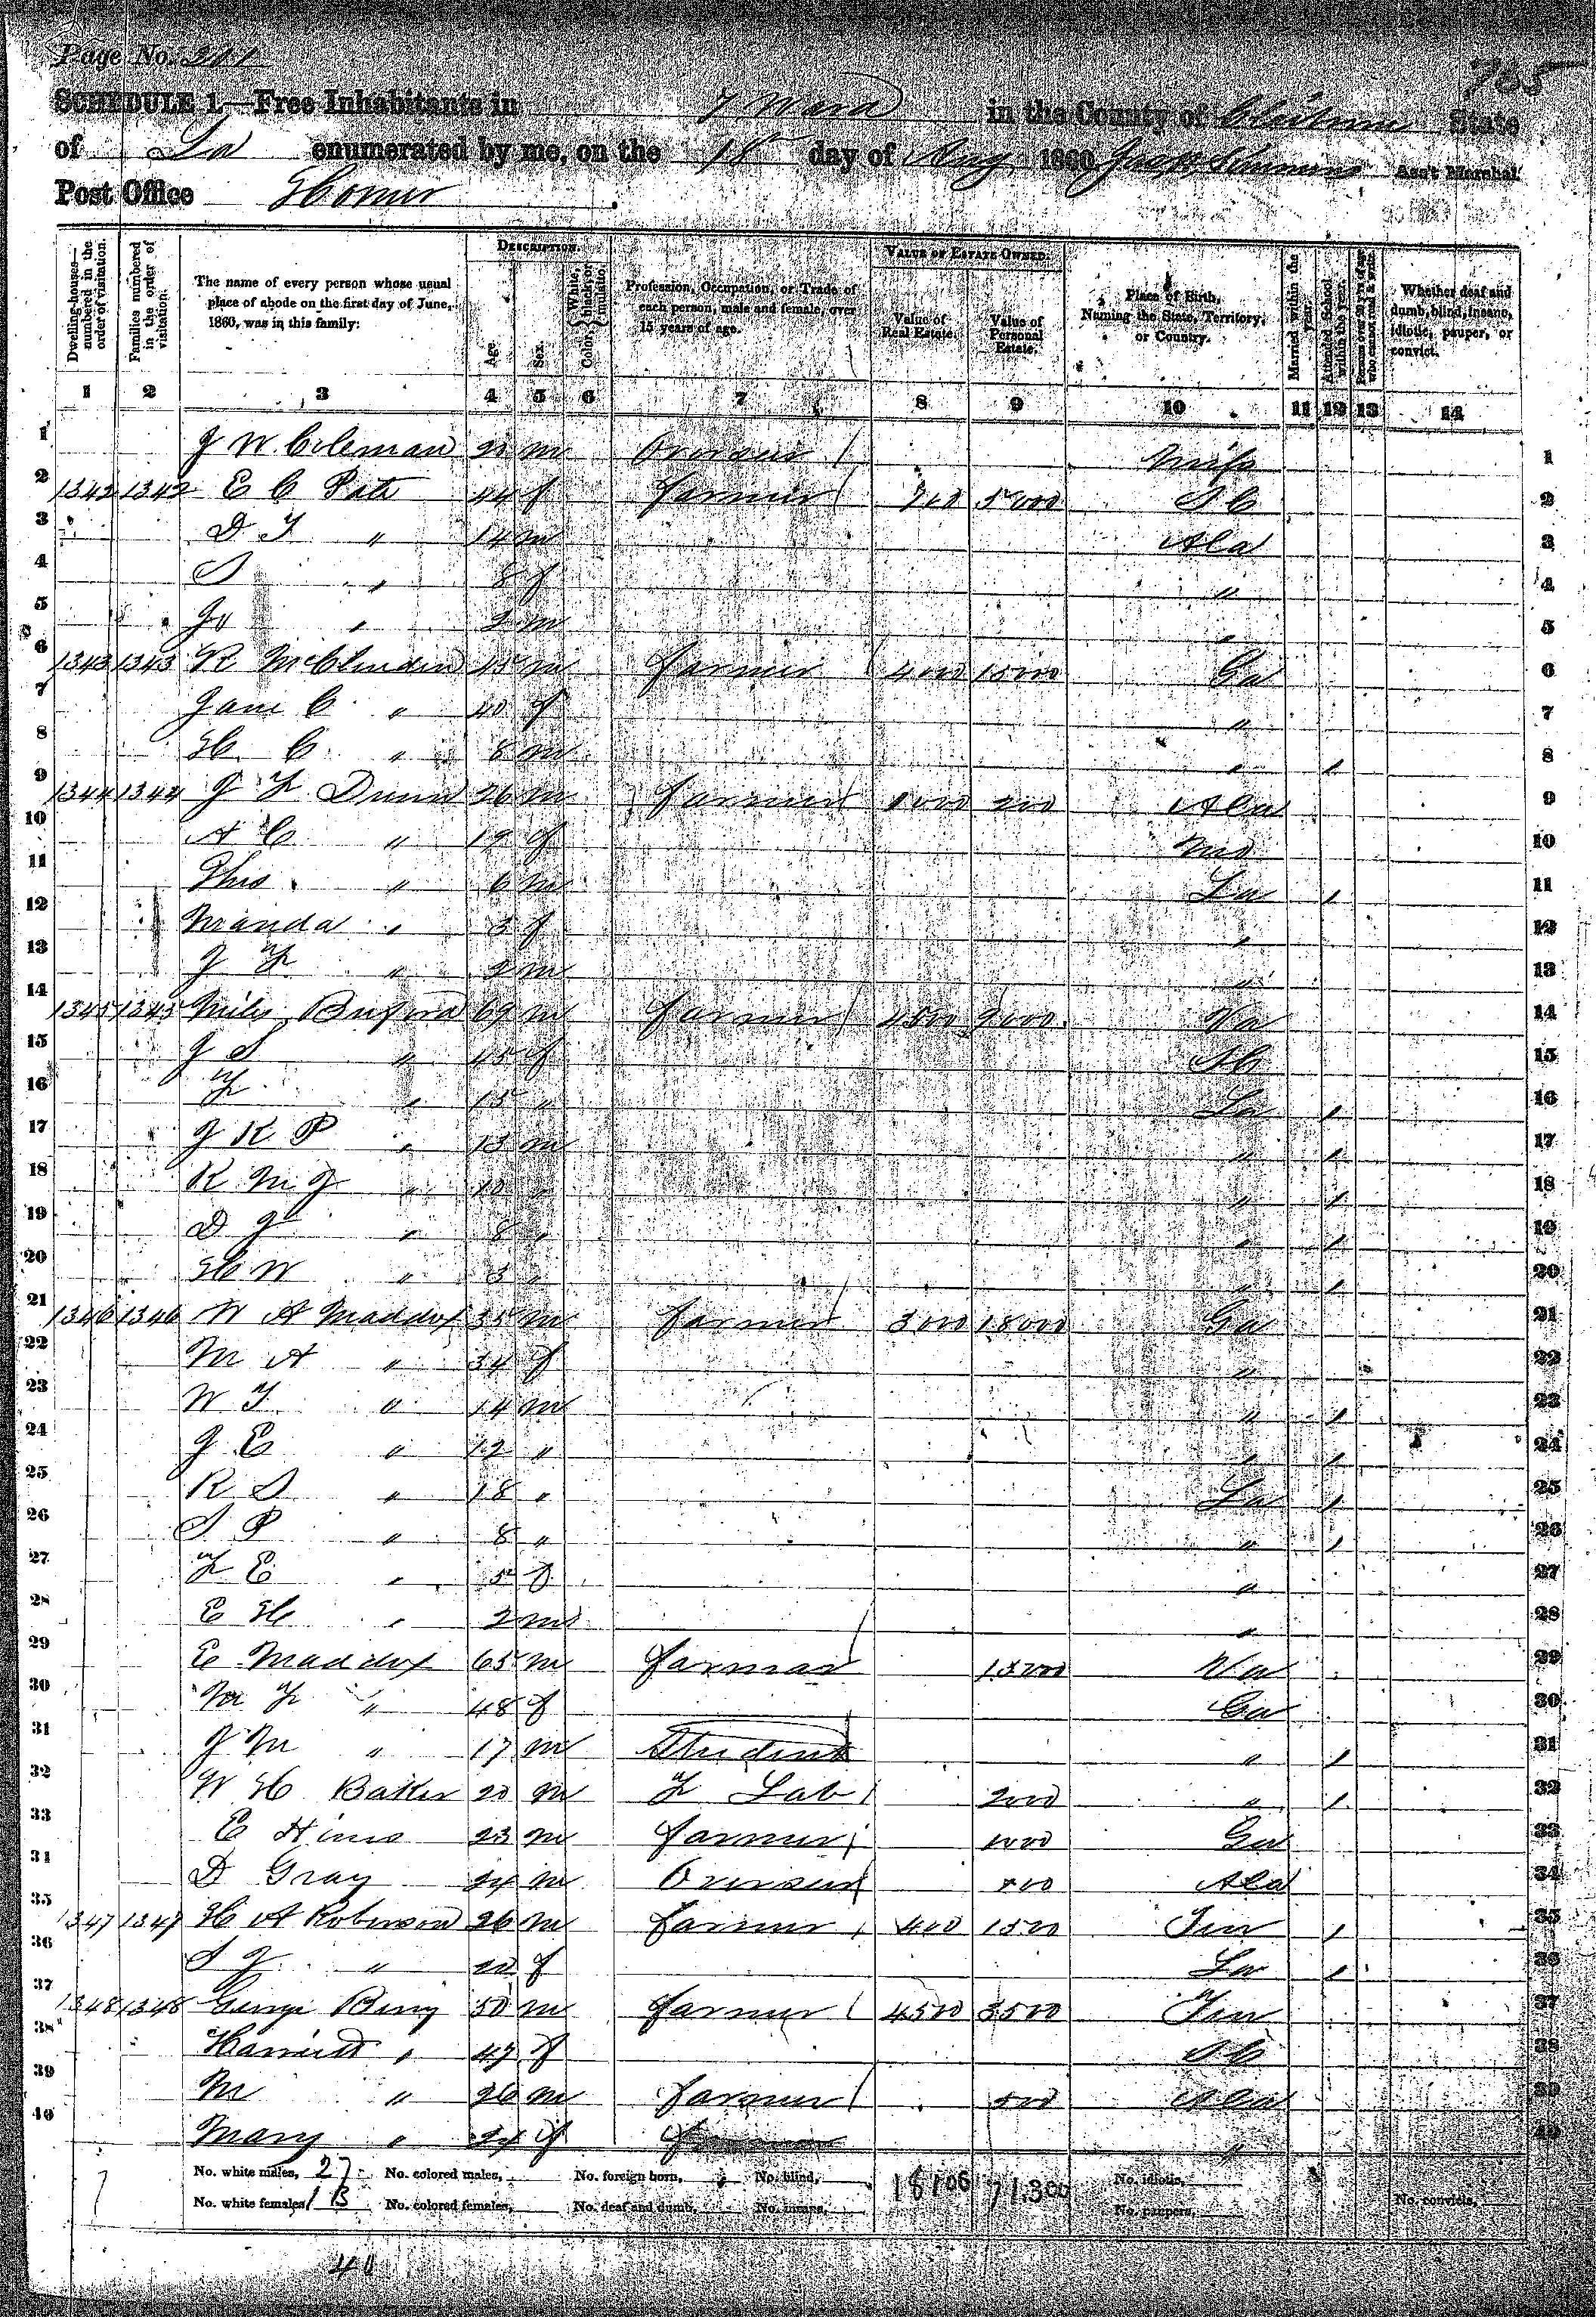 Page No. 201
765
SCHEDULE 1.—Free Inhabitants in 7 Ward in the County of Claiborne State
of La enumerated by me, on the 18 day of Aug 1860 Ass't Marshal
Post Office Homer
Dwelling-houses—numbered in the order of visitation.
Families numbered in the order of visitation.
The name of every person whose usual place of abode on the first day of June, 1860, was in this family:
DESCRIPTION.
Age.
Sex.
Color, White, black, or mulatto.
Profession, Occupation, or Trade of each person, male and female, over 15 years of age.
VALUE OF ESTATE OWNED.
Value of Real Estate.
Value of Personal Estate.
Place of Birth, Naming the State, Territory, or Country.
Married within the year.
Attended School within the year.
Persons over 20 y'rs of age who cannot read & write.
Whether deaf and dumb, blind, insane, idiotic, pauper, or convict.
1 2 3 4 5 6 7 8 9 10 11 12 13 14
1 J W Coleman m Overseer Miss 1
2 1342 1342 E C Pate 44 f farmer 5000 S C 2
3 D T " 14 m Ala 3
4 S " 8 f " 4
5 " 2 m " 5
6 1343 1343 R McClendon 45 m farmer 4000 15000 Ga 6
7 Jane C " 40 f " 7
8 H C " 8 m " / 8
9 1344 1344 J F Dunn 26 m farmer 1000 200 Ala 9
10 A C " 19 f Mo 10
11 Thos " 6 m La / 11
12 " 3 f " 12
13 J F " 2 m " 13
14 1345 1345 Miles Buford 69 m farmer 4500 9000 Va 14
15 J S " 45 f S C 15
16 F " 15 " La / 16
17 J K P " 13 m " / 17
18 R M J " 10 " " / 18
19 D J " 8 " " / 19
20 H W " " " / 20
21 1346 1346 W A Maddox 35 m farmer 3000 18000 Ga 21
22 M A " 34 f " 22
23 W T " 14 m " / 23
24 J E " 12 " " / 24
25 R S " 18 " La / 25
26 S P " 8 " " / 26
27 F E " 5 f " 27
28 E H " 2 m " 28
29 E Maddox 65 m farmer Va 29
30 M F " 48 f Ga 30
31 J M " 17 m Student " / 31
32 W H Baker 20 m F Lab 2000 " / 32
33 E Hines 23 m farmer 1000 Ga 33
34 D Gray 24 m Overseer Ala 34
35 1347 1347 H A Roberson 26 m farmer 400 1500 Ten / 35
36 S J " 20 f La / 36
37 1348 1348 George Berry 50 m farmer 4500 3500 Ten 37
38 Harriett " 47 f S C 38
39 M " 26 m farmer 500 Ala 39
40 Mary " 24 f " 40
No. white males, 27 No. colored males, No. foreign born, No. blind, 18100 71,300 No. idiotic,
No. white females, 13 No. colored females, No. deaf and dumb, No. insane, No. paupers, No. convicts,
40